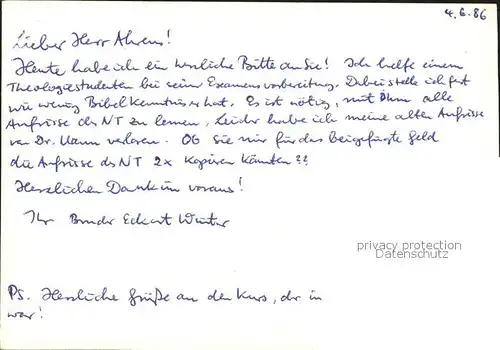 4.6.86
Lieber Herr Ahrens!
Heute habe ich ein herzliche Bitte an Sie! Ich helfe einem
Theologiestudenten bei seiner Examensvorbereitung. Dabei stelle ich fest
wie wenig Bibelkenntnisse hat. Es ist nötig, mit ihm alle
Aufrisse des NT zu lernen, Leider habe ich meine alten Aufrisse
von Dr. verloren. Ob Sie mir für das beigefügte Geld
die Aufrisse des NT 2x kopieren könnten??
Herzlichen Dank im voraus!
Ihr Bruder Eckart Winter
privacy protection
Datenschutz
PS. Herzliche Grüße an den Kurs, der in
war!